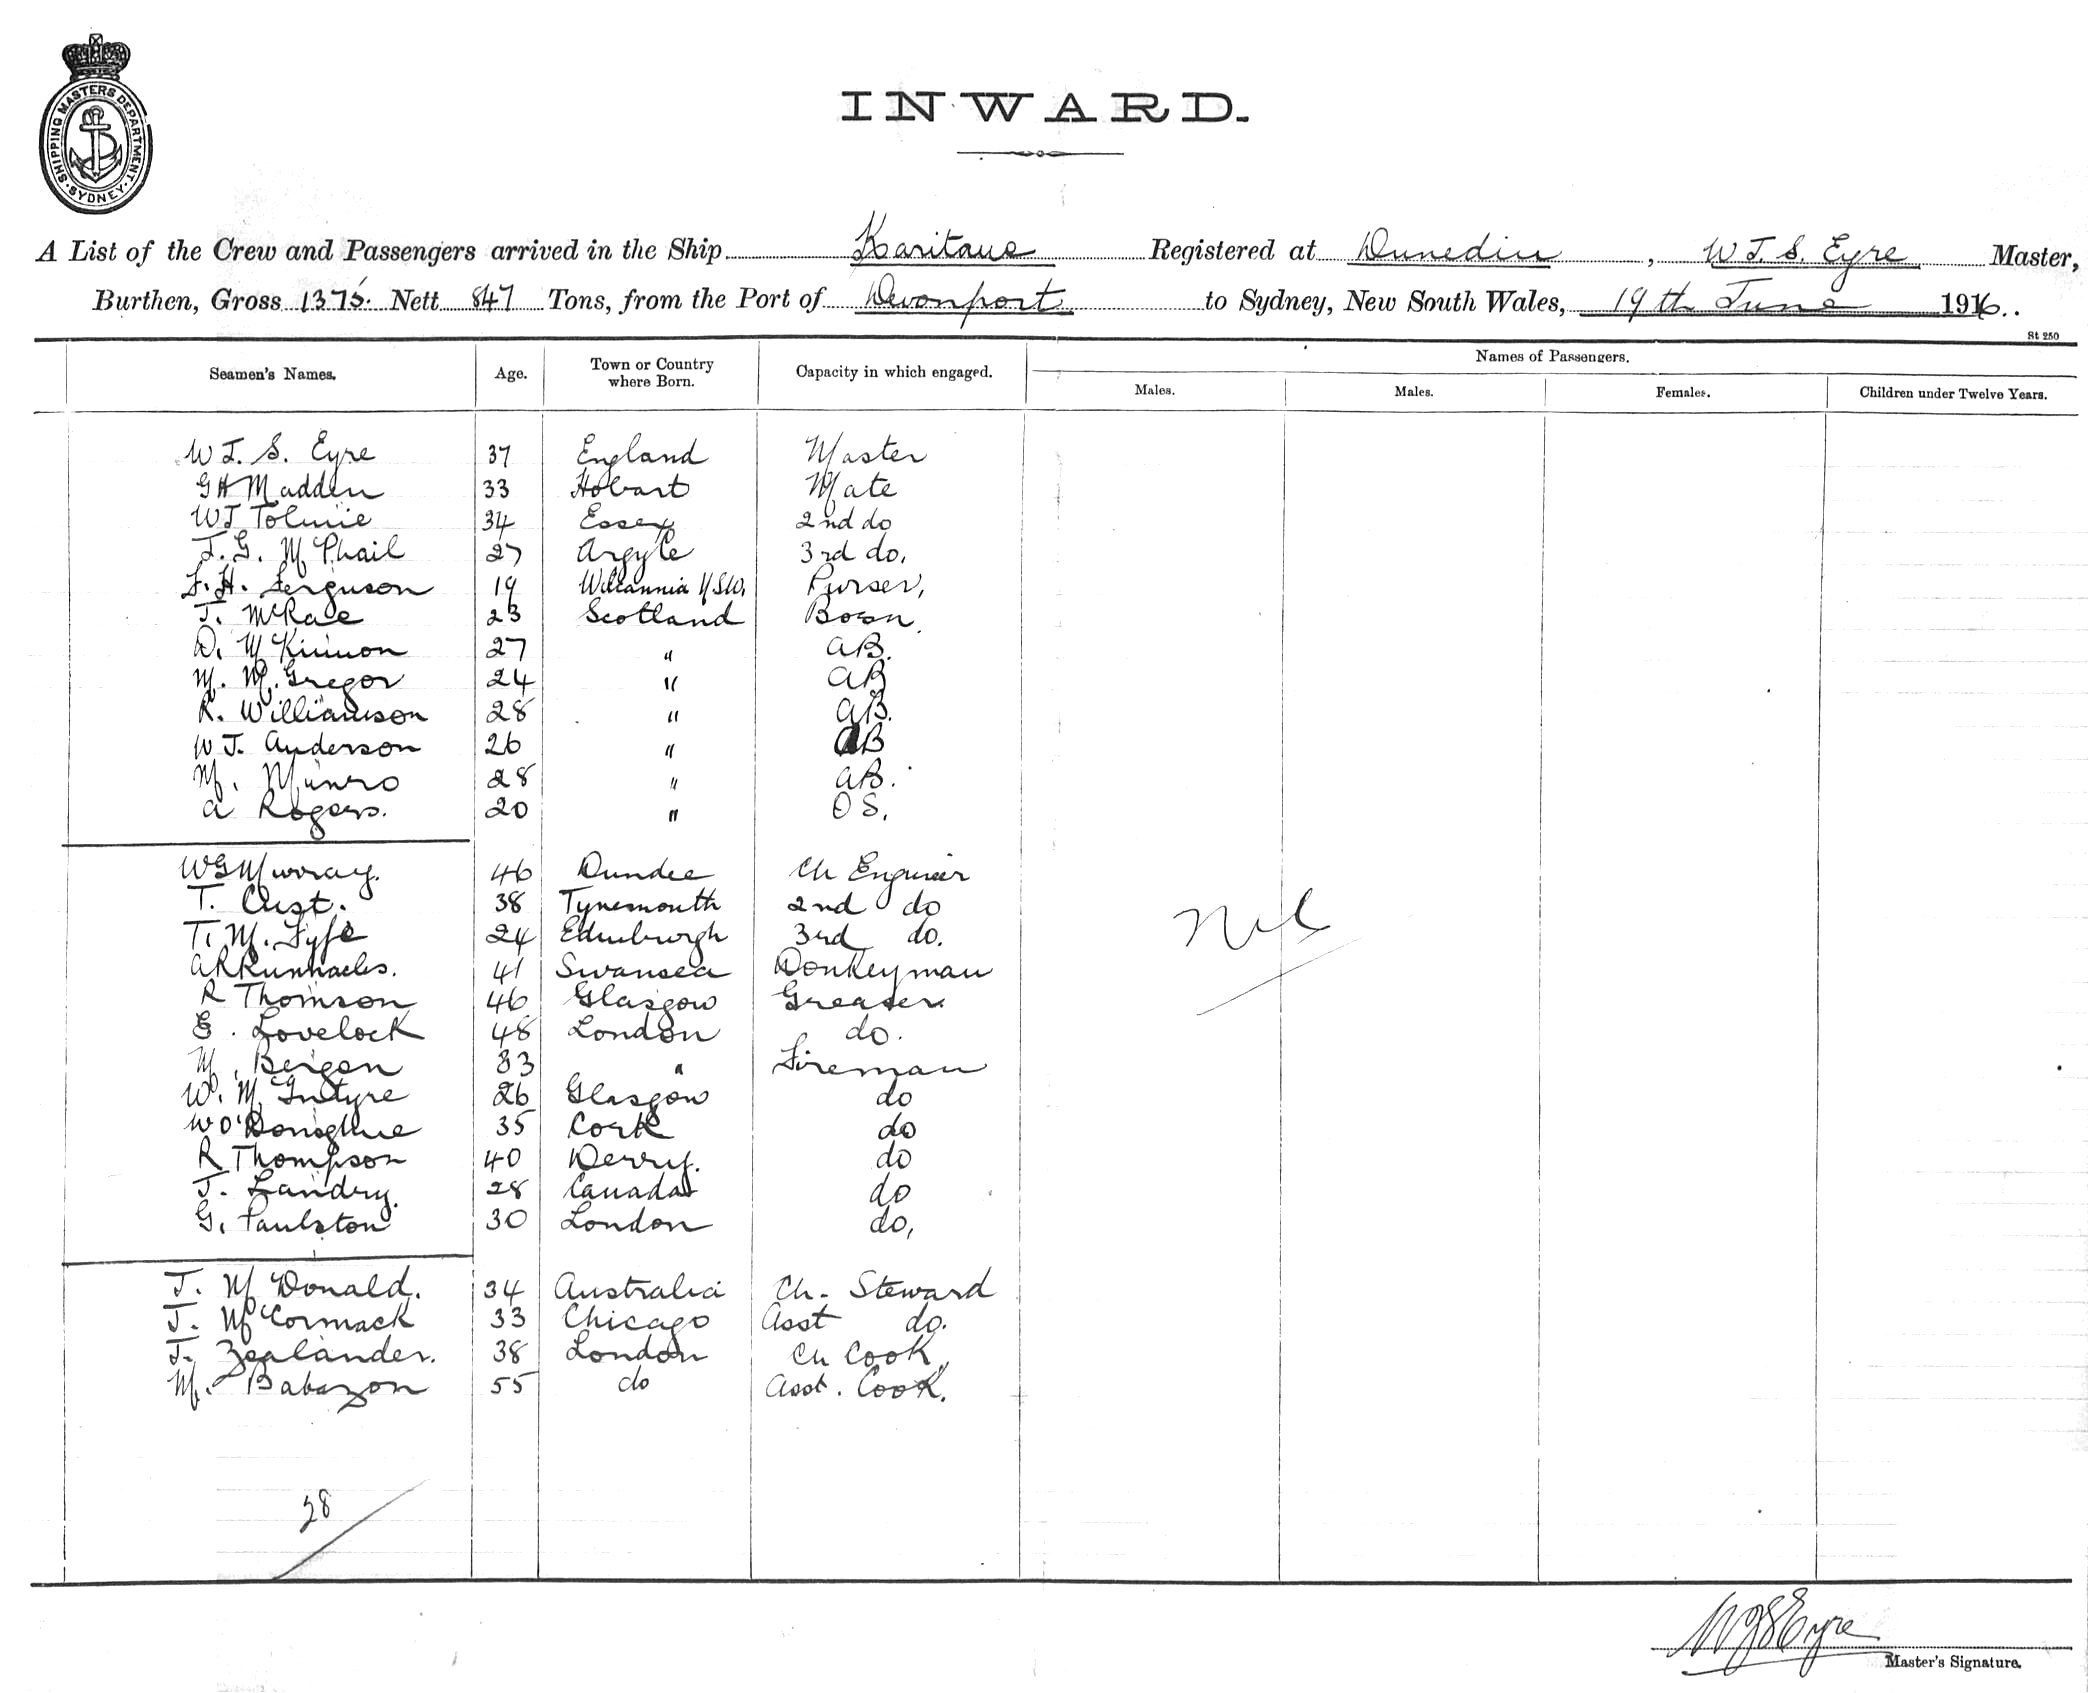 SHIPPING MASTERS DEPARTMENT. SYDNEY.
INWARD.
A List of the Crew and Passengers arrived in the Ship Karitane Registered at Dunedin, W J. S. Eyre Master,
Burthen, Gross 1375. Nett 847 Tons, from the Port of Devonport to Sydney, New South Wales, 19th June 1916.
St 250
Seamen's Names. Age. Town or Country where Born. Capacity in which engaged. Names of Passengers.
Males. Males. Females. Children under Twelve Years.
W J. S. Eyre 37 England Master
G H Madden 33 Hobart Mate
W J Tolmie 34 Essex 2nd do
J. G. McPhail 27 Argyle 3rd do.
F. H. Ferguson 19 Wilcannia NSW. Purser,
J. McRae 23 Scotland Bosn.
D. McKinnon 27 " AB.
M. McGregor 24 " AB
R. Williamson 28 " AB.
W J. Anderson 26 " AB
M. Munro 28 " AB.
A Rogers. 20 " OS.
W G Murray. 46 Dundee Ch Engineer
T. Cust. 38 Tynemouth 2nd do
T. M. Fyfe 24 Edinburgh 3rd do.
A R 41 Swansea Donkeyman
R Thomson 46 Glasgow Greaser
E. Lovelock 48 London do.
M. Bergen 33 " Fireman
W. McIntyre 26 Glasgow do
W O'Donoghue 35 Cork do
R Thompson 40 Derry. do
J. Landry. 28 Canada do
G. Paulston 30 London do,
J. McDonald. 34 Australia Ch. Steward
J. McCormack 33 Chicago Asst do.
J. Zealander. 38 London Ch Cook,
M. Babazon 55 do Asst. Cook.
Nil
28
W J S Eyre
Master's Signature.